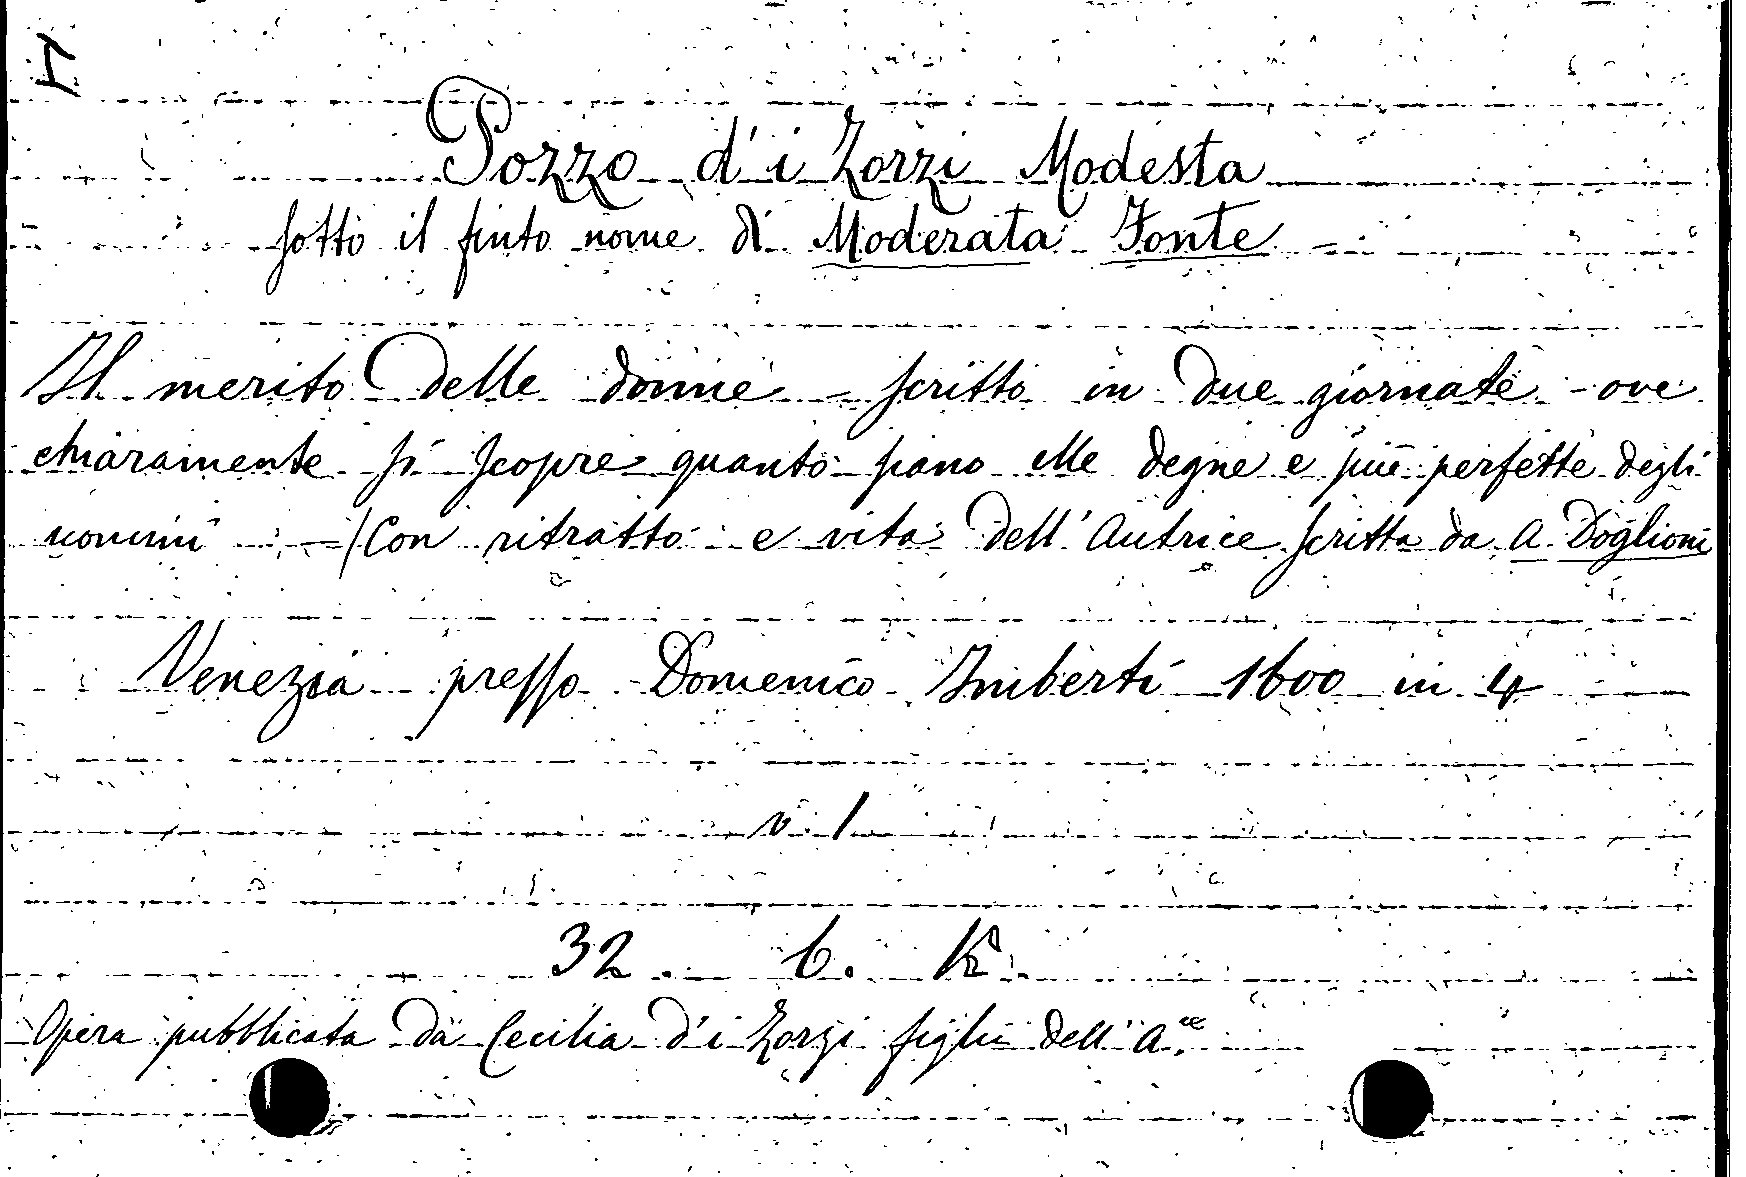 1
Pozzo d'i Zorzi Modesta
sotto il finto nome di Moderata Fonte
Il merito delle donne - scritto in due giornate - ove
chiaramente si scopre quanto siano elle degne e più perfette degli
uomini - /Con ritratto e vita dell'Autrice scritta da A. Doglioni
Venezia presso Domenico Imberti 1600 in 4
v. 1
32. 6. K.
Opera pubblicata da Cecilia d'i Zorzi figlia dell'A.ce